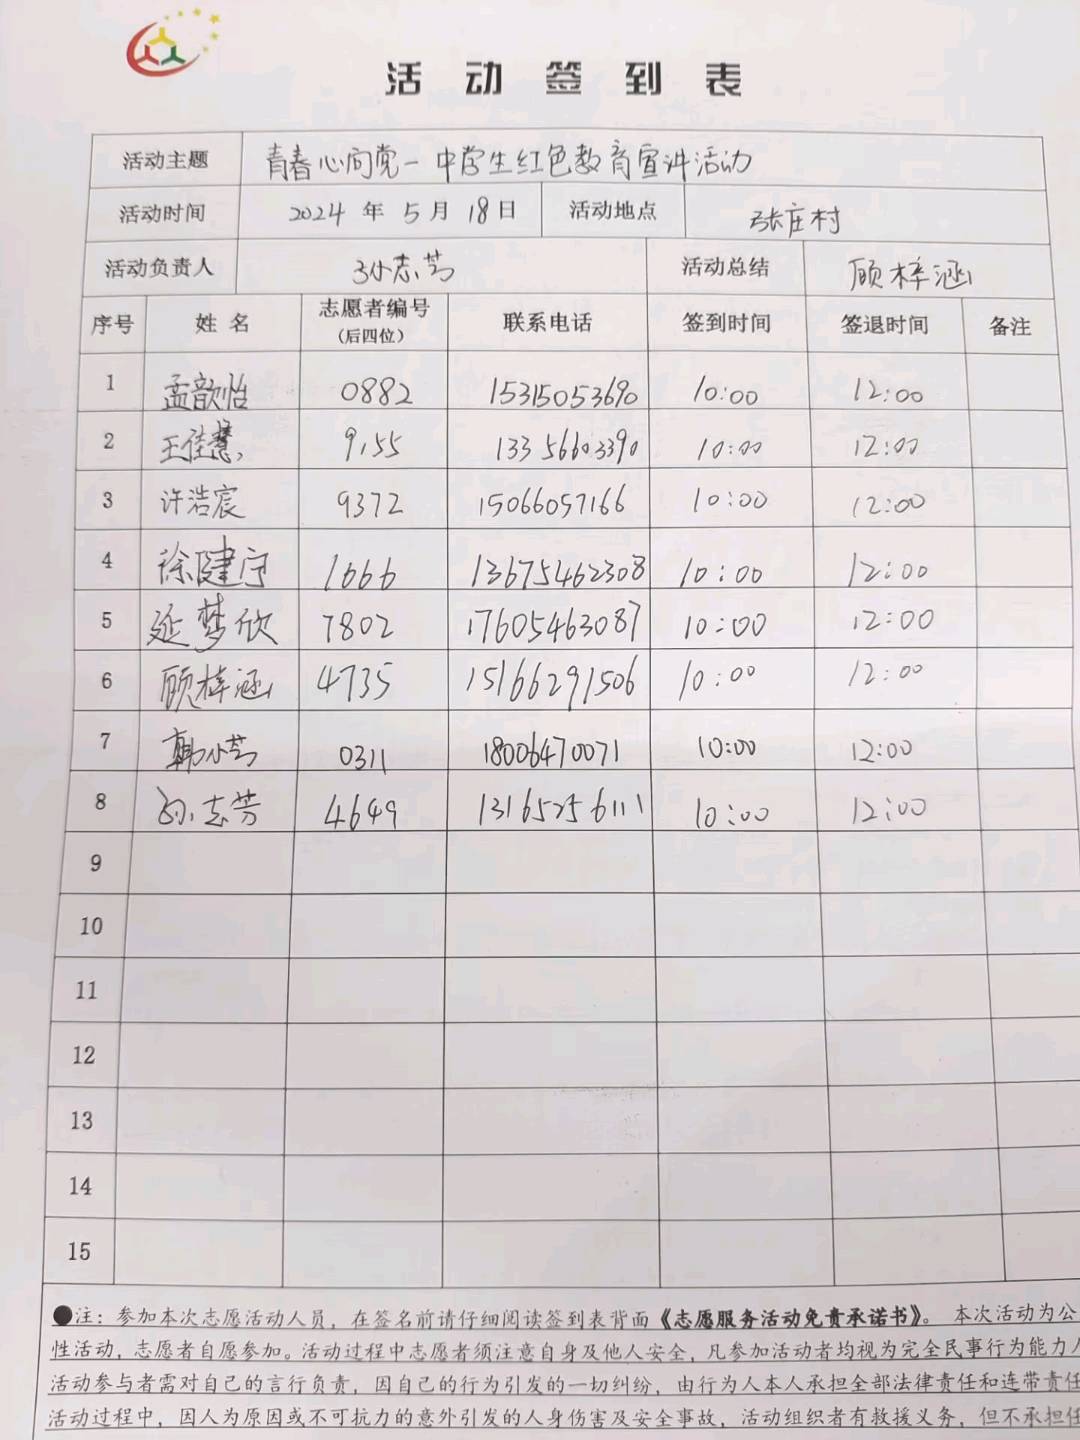 活动签到表
活动主题 青春心向党一中学生红色教育宣讲活动
活动时间 2024年5月18日 活动地点 张庄村
活动负责人 孙志芳 活动总结 顾梓涵
序号 姓名 志愿者编号(后四位) 联系电话 签到时间 签退时间 备注
1 孟歆怡 0882 15315053690 10:00 12:00
2 王佳慧 9155 13356603390 10:00 12:00
3 许浩宸 9372 15066057166 10:00 12:00
4 徐健宁 1666 13675462308 10:00 12:00
5 延梦欣 7802 17605463087 10:00 12:00
6 顾梓涵 4735 15166291506 10:00 12:00
7 韩小芳 0311 18006470071 10:00 12:00
8 孙志芳 4649 13165256111 10:00 12:00
9
10
11
12
13
14
15
●注：参加本次志愿活动人员，在签名前请仔细阅读签到表背面《志愿服务活动免责承诺书》。 本次活动为公
性活动，志愿者自愿参加。活动过程中志愿者须注意自身及他人安全，凡参加活动者均视为完全民事行为能力
活动参与者需对自己的言行负责，因自己的行为引发的一切纠纷，由行为人本人承担全部法律责任和连带责任
活动过程中，因人为原因或不可抗力的意外引发的人身伤害及安全事故，活动组织者有救援义务，但不承担任